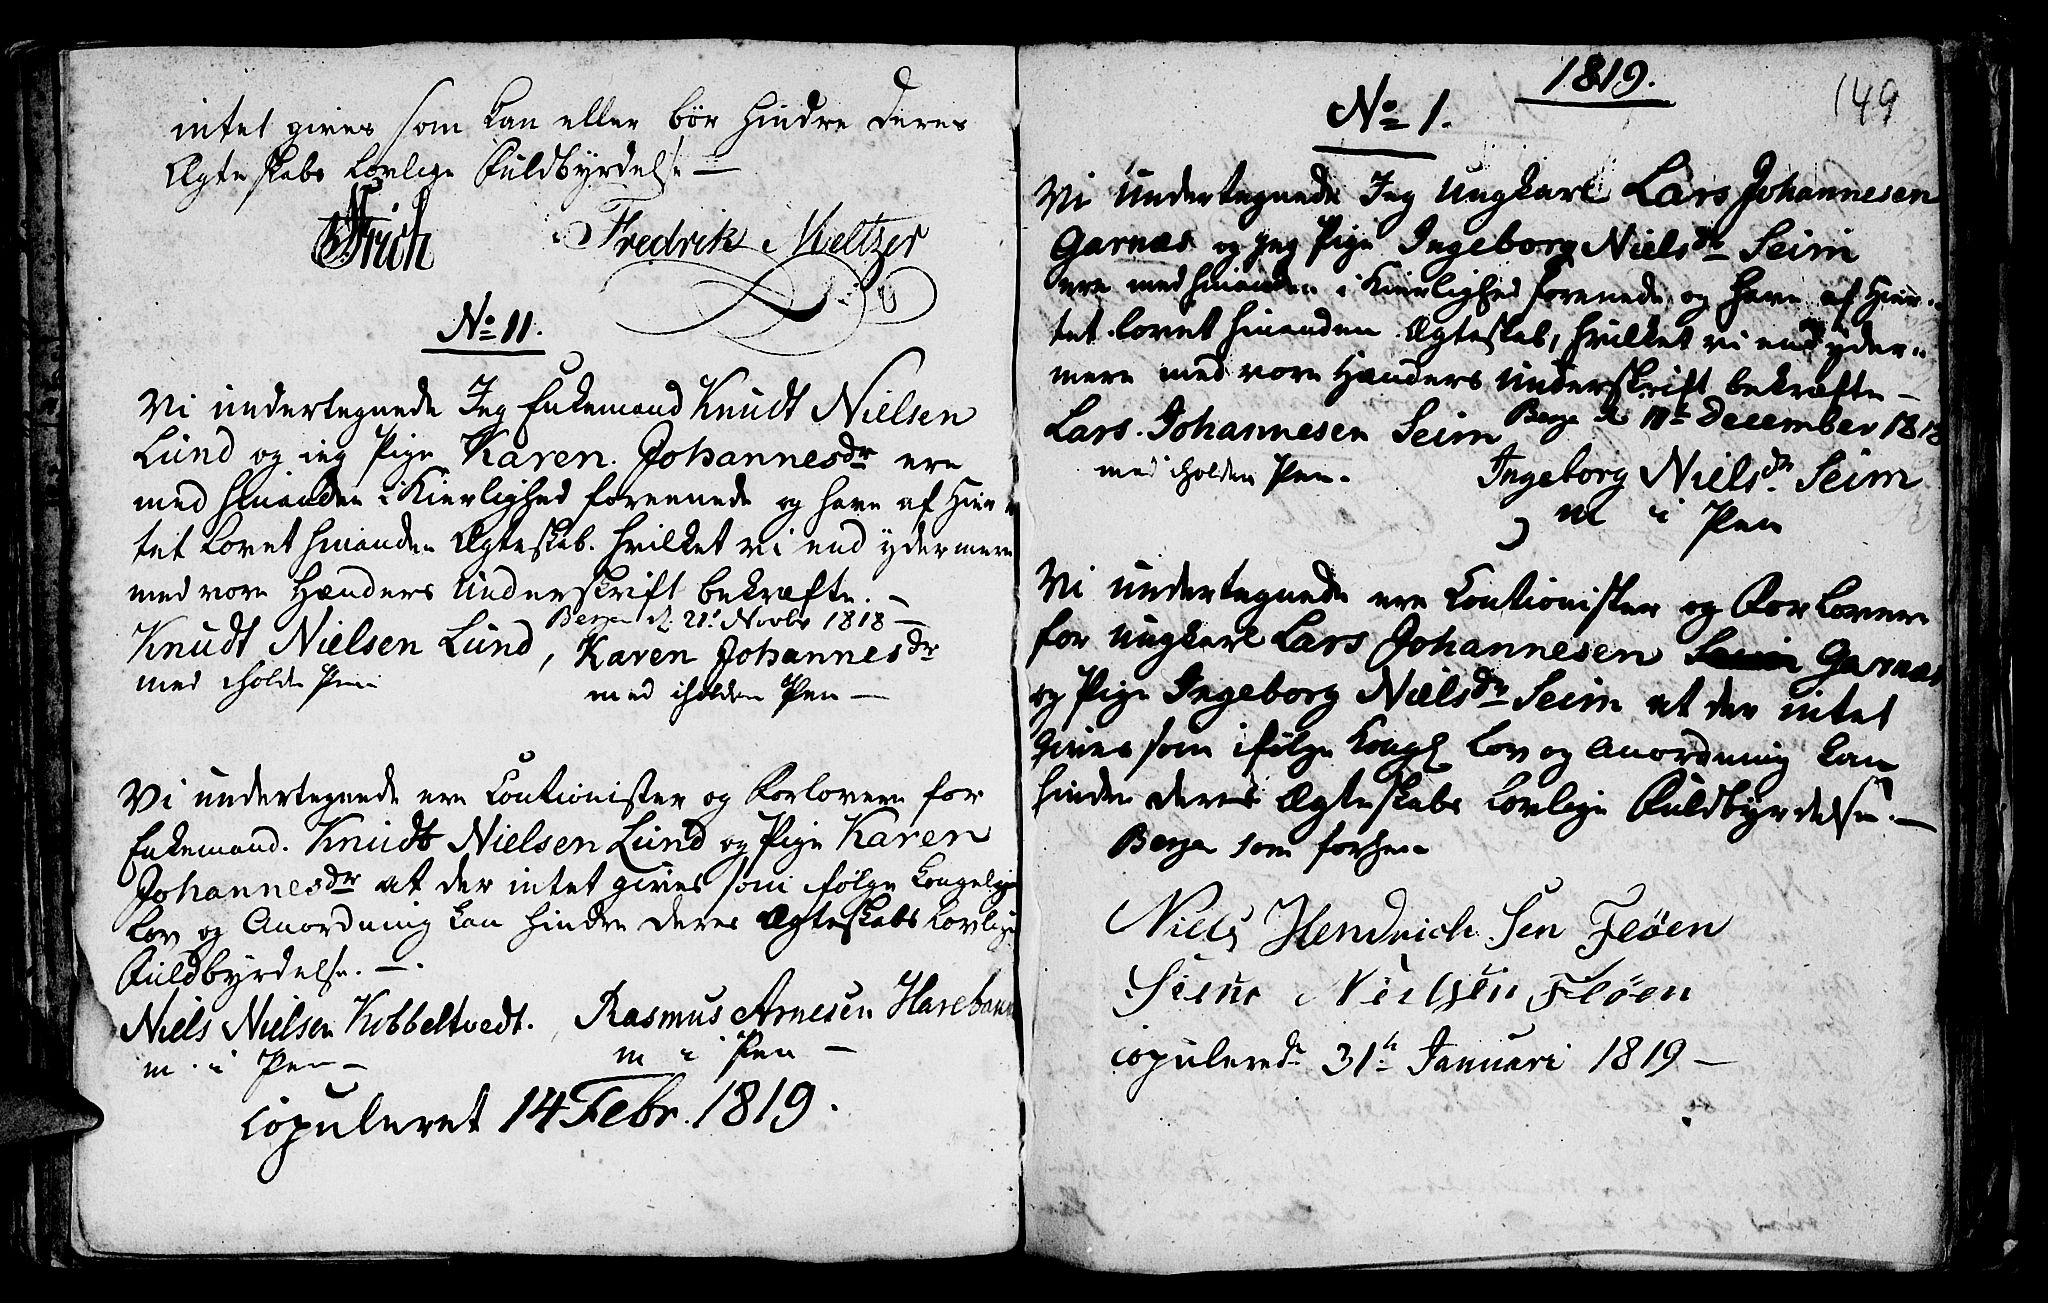 intet gives som kan eller bör hindre deres
Ægteskabs Lovlige Fuldbyrdelse —
Frich Fredrik Meltzer
No 11.
Vi undertegnede Jeg Enkemand Knudt Nielsen
Lund og ieg Pige Karen Johannesdr ere
med hinanden i Kierlighed forenede og have af Hier¬
tet Lovet hinanden Ægteskab. hvilket vi end ydermere
med vore Hænders Underskrift bekræfte. —
Bergen d. 21t Novbr 1818 —
Knudt Nielsen Lund, Karen Johannesdr
med iholden Pen med iholden Pen —
Vi undertegnede ere Coutionister og Forlovere for
Enkemand. Knudt Nielsen Lund og Pige Karen
Johannesdr at der intet gives som ifölge Kongelige
Lov og Anordning kan hindre deres Ægteskabs Lovlige
Fuldbyrdelse. —.
Niels Nielsen Kobbeltvedt. Rasmus Arnesen
m. i Pen — m i Pen —
copuleret 14 Febr. 1819.
1819.
149
No 1.
Vi undertegnede Jeg Ungkarl Lars Johannesen
Garnæs og jeg Pige Ingeborg Nielsdr Seim
ere med hinanden i Kierlighed forenede og have af Hier¬
tet lovet hinanden Ægteskab, hvilket vi end yder¬
mere med vore Hænders Underskrift bekræfte —
Bergen d. december 1818
Lars Johannesen Seim
med iholden Pen. Ingeborg Nielsdr. Seim
m i Pen
Vi undertegnede ere Coutionister og Forlovere
for ungkarl Lars Johannesen Seim Garnæs
og Pige Ingeborg Nielsdr Seim at der intet
gives som ifölge Kongl Lov og Anordning kan
hindre deres Ægteskabs Lovlige Fuldbyrdelse. —
Bergen som forhen
Niels Hendrich Sen Fløen
Nielsen Fløen
copulerede 31te Januari 1819 —